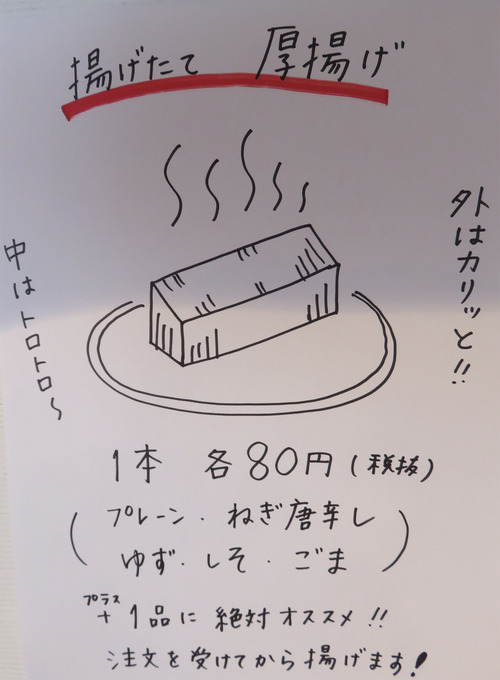 揚げたて 厚揚げ
外はカリッと!!
中はトロトロ~
1本 各80円(税抜)
(プレーン・ねぎ唐辛し
ゆず・しそ・ごま)
プラス
+1品に絶対オススメ!!
注文を受けてから揚げます!